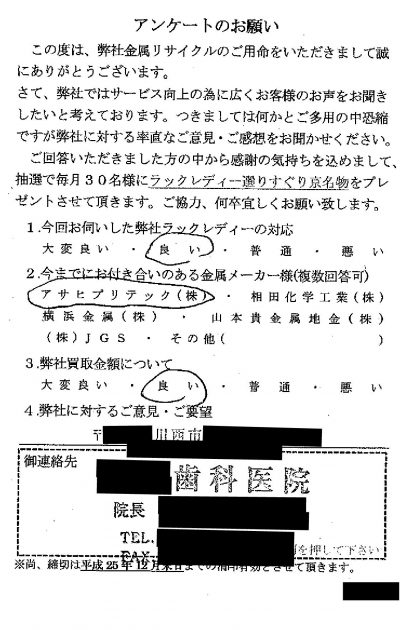 アンケートのお願い
この度は、弊社金属リサイクルのご用命をいただきまして誠
にありがとうございます。
さて、弊社ではサービス向上の為に広くお客様のお声をお聞き
したいと考えております。つきましては何かとご多用の中恐縮
ですが弊社に対する率直なご意見・ご感想をお聞かせください。
ご回答いただきました方の中から感謝の気持ちを込めまして、
抽選で毎月30名様にラックレディー選りすぐり京名物をプレ
ゼントさせて頂きます。ご協力、何卒宜しくお願い致します。
1.今回お伺いした弊社ラックレディーの対応
大変良い ・ 良い ・ 普通 ・ 悪い
2.今までにお付き合いのある金属メーカー様(複数回答可)
アサヒプリテック(株) ・ 相田化学工業(株)
横浜金属(株) ・ 山本貴金属地金(株)
(株)JGS ・ その他( )
3.弊社買取金額について
大変良い ・ 良い ・ 普通 ・ 悪い
4.弊社に対するご意見・ご要望
〒 川西市
御連絡先
歯科医院
院長
TEL.
FAX を押して下さい
※尚、締切は平成25年12月末日までの消印有効とさせて頂きます。